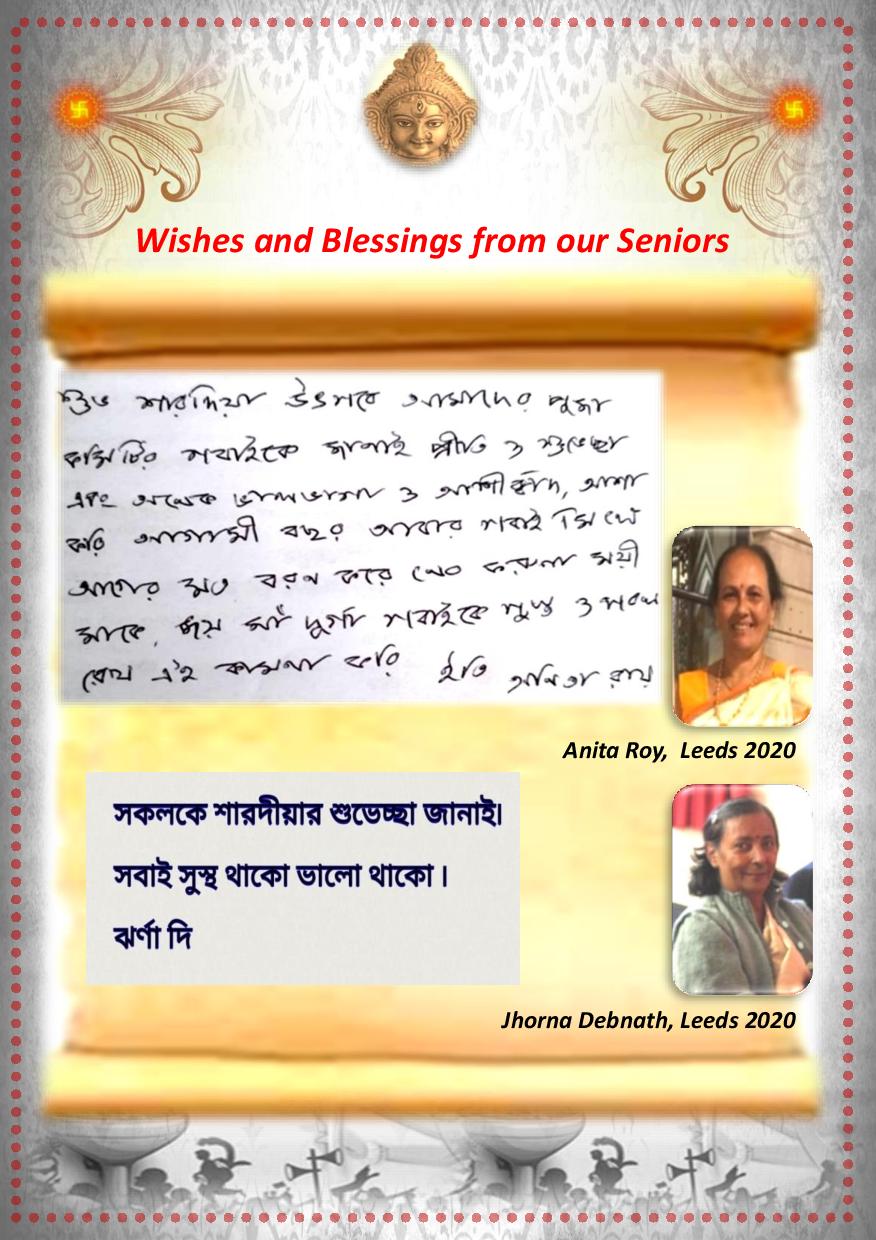 Wishes and Blessings from our Seniors
শুভ শারদিয়া উৎসবে আমাদের পুজা
কমিটির সবাইকে জানাই প্রীতি ও শুভেচ্ছা
এবং অনেক ভালভাসা ও আশীর্ব্বাদ, আশা
করি আগামী বছর আবার সবাই মিলে
আগের মত বরণ করে নেব করুনা ময়ী
মাকে, জয় মাঁ দুর্গা সবাইকে সুস্থ ও
রেখ এই কামনা করি ইতি অনিতা রায়
Anita Roy, Leeds 2020
সকলকে শারদীয়ার শুভেচ্ছা জানাই।
সবাই সুস্থ থাকো ভালো থাকো।
ঝর্ণা দি
Jhorna Debnath, Leeds 2020